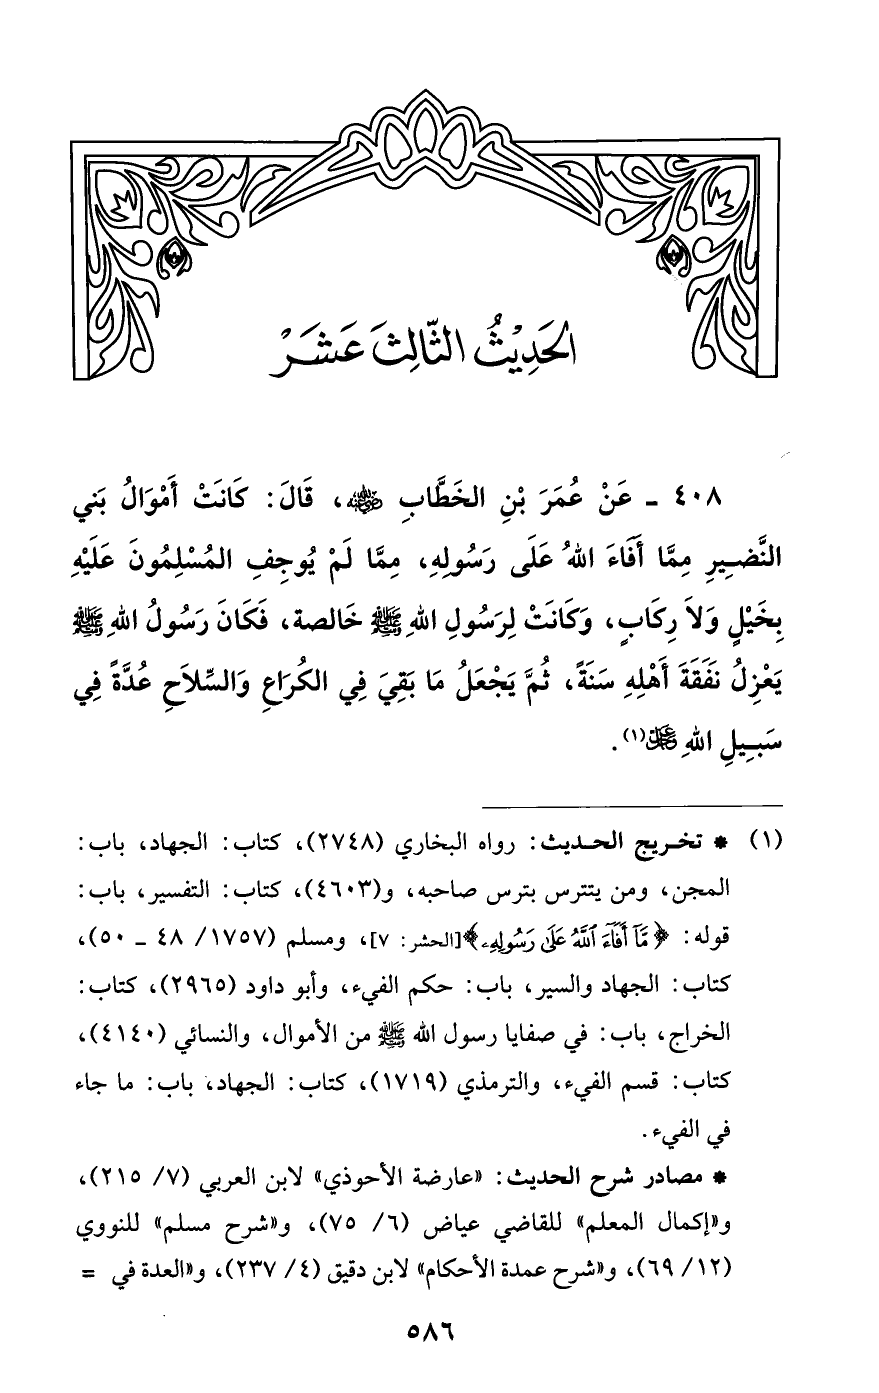 الحَدِيْثُ الثَّالِثَ عَشَرَ
٤٠٨ ـ عَنْ عُمَرَ بْنِ الخَطَّابِ رضي الله عنه، قَالَ: كَانَتْ أَمْوَالُ بَنِي
النَّضِيرِ مِمَّا أَفَاءَ اللهُ عَلَى رَسُولِهِ، مِمَّا لَمْ يُوجِفِ المُسْلِمُونَ عَلَيْهِ
بِخَيْلٍ وَلاَ رِكَابٍ، وَكَانَتْ لِرَسُولِ اللهِ ﷺ خَالصة، فَكَانَ رَسُولُ اللهِ ﷺ
يَعْزِلُ نَفَقَةَ أَهْلِهِ سَنَةً، ثُمَّ يَجْعَلُ مَا بَقِيَ فِي الكُرَاعِ وَالسِّلاَحِ عُدَّةً فِي
سَبِيلِ اللهِ عز وجل(١).
(١) * تخريج الحديث: رواه البخاري (٢٧٤٨)، كتاب: الجهاد، باب:
المجن، ومن يتترس بترس صاحبه، و(٤٦٠٣)، كتاب: التفسير، باب:
قوله: ﴿مَّآ أَفَآءَ ٱللَّهُ عَلَىٰ رَسُولِهِۦ﴾[الحشر: ٧]، ومسلم (١٧٥٧/ ٤٨ ـ ٥٠)،
كتاب: الجهاد والسير، باب: حكم الفيء، وأبو داود (٢٩٦٥)، كتاب:
الخراج، باب: في صفايا رسول الله ﷺ من الأموال، والنسائي (٤١٤٠)،
كتاب: قسم الفيء، والترمذي (١٧١٩)، كتاب: الجهاد، باب: ما جاء
في الفيء.
* مصادر شرح الحديث: «عارضة الأحوذي» لابن العربي (٧/ ٢١٥)،
و«إكمال المعلم» للقاضي عياض (٦/ ٧٥)، و«شرح مسلم» للنووي
(١٢/ ٦٩)، و«شرح عمدة الأحكام» لابن دقيق (٤/ ٢٣٧)، و«العدة في =
٥٨٦